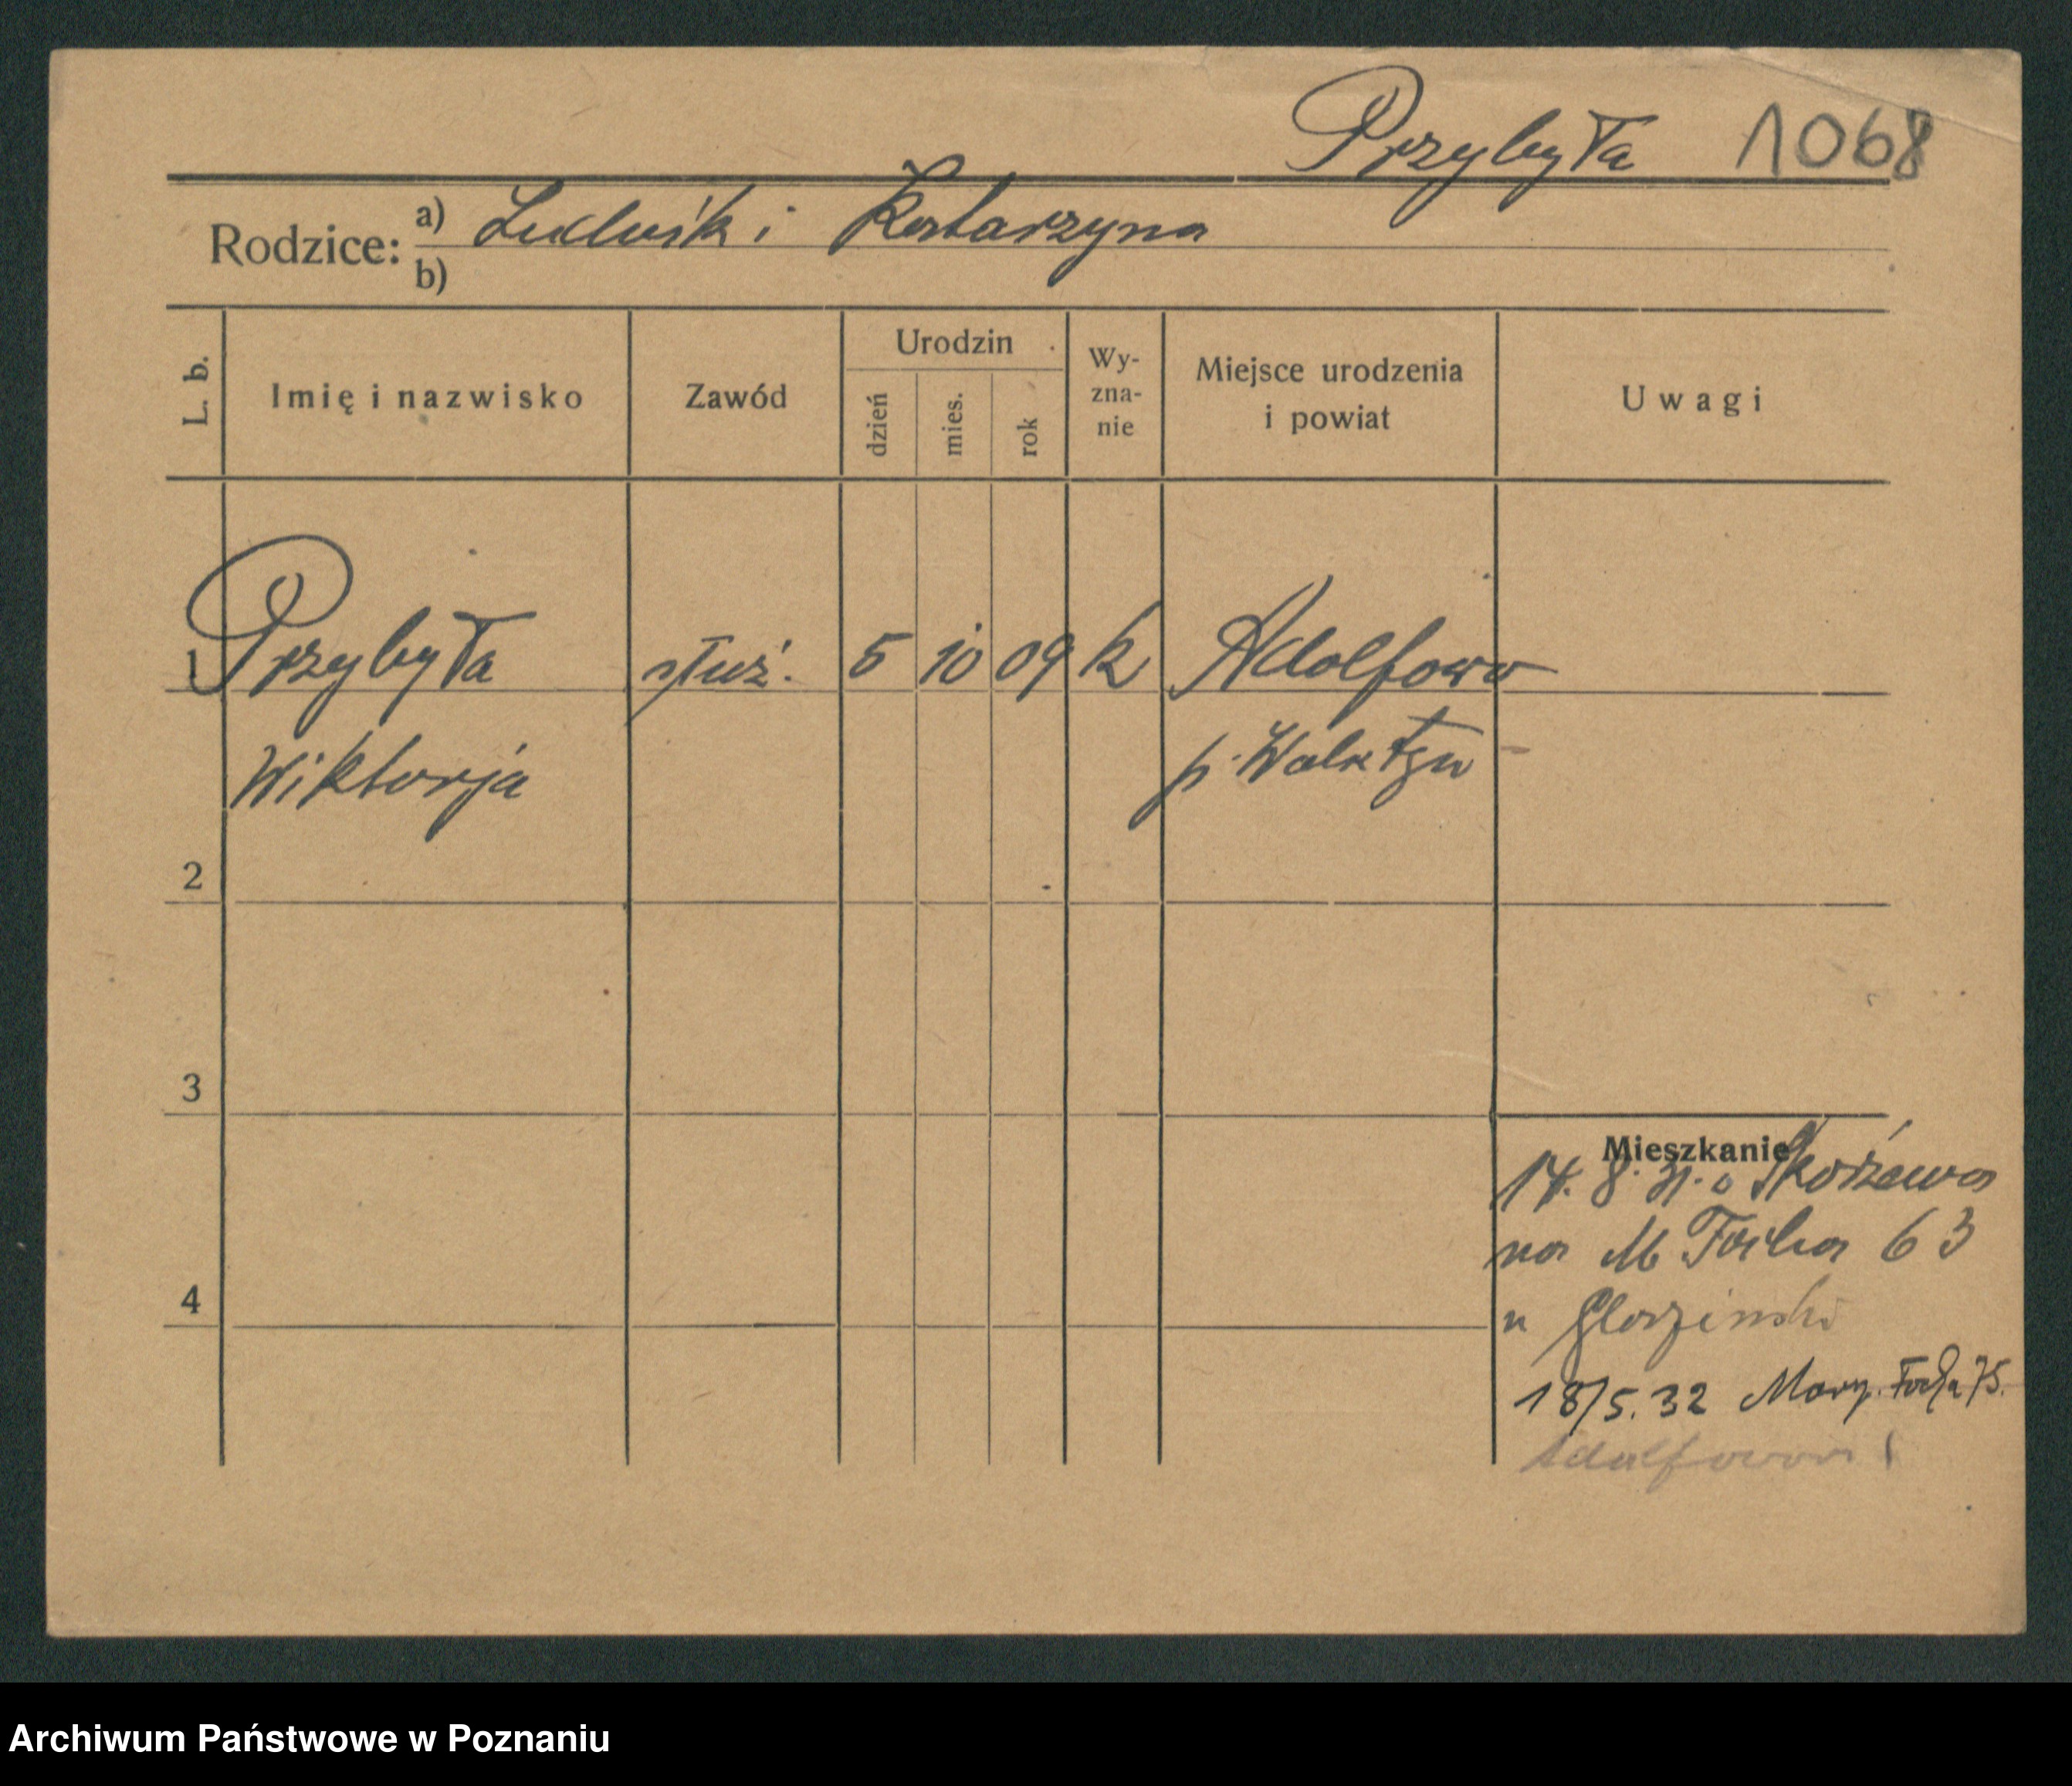 Przybyła 1068
Rodzice: a) Ludwik i Katarzyna
b)
L. b. Imię i nazwisko Zawód Urodzin dzień mies. rok Wy-zna-nie Miejsce urodzenia i powiat Uwagi
1 Przybyła służ. 5 10 09 k Adolfowo
Wiktorja p.
2
3
4
Mieszkanie
14. 8. 31. Skórzewa
na M. Focha 63
u
18/5. 32 Marsz. Focha 75.
Adolfowo
Archiwum Państwowe w Poznaniu